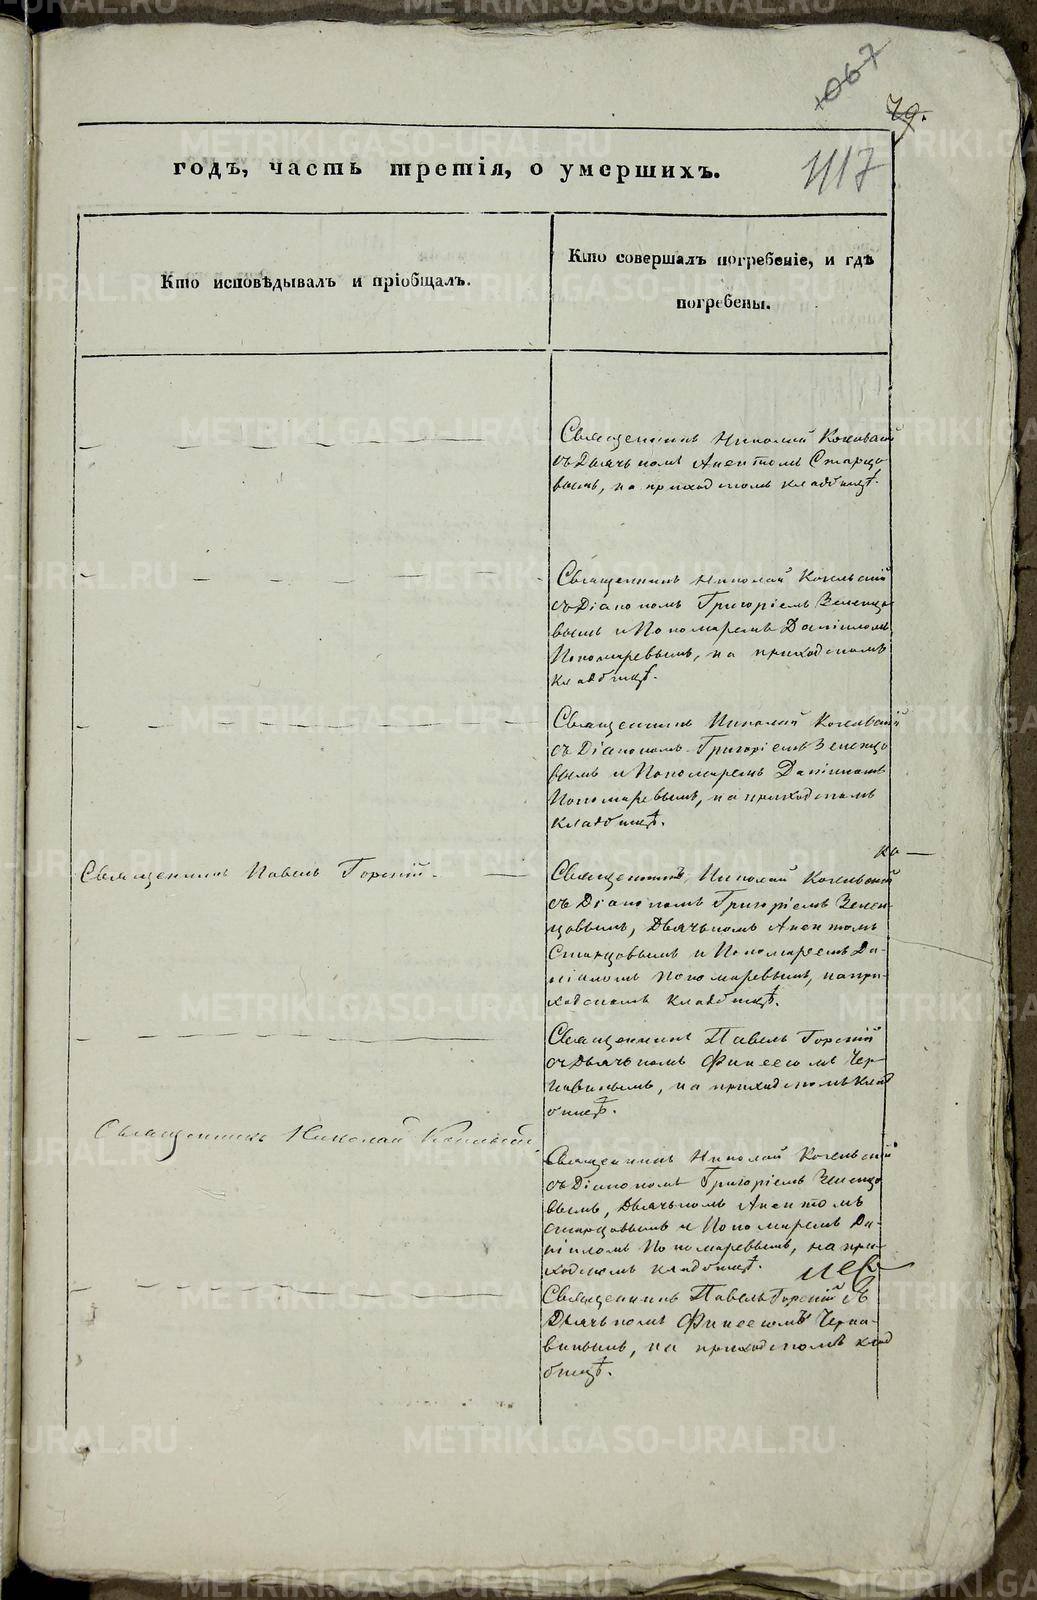 1067
79.
годъ, часть третія, о умершихъ.
1117
Кто исповѣдывалъ и пріобщалъ.
Кто совершалъ погребеніе, и гдѣ
погребены.
Священникъ Николай
съ Дьячькомъ Анектомъ Старцо
вымъ, на приходскомъ кладбищѣ.
Священникъ Николай
съ Діакономъ Григоріемъ Зеленцо
вымъ и Пономаремъ Даніиломъ
Пономаревымъ, на приходскомъ
кладбищѣ.
Священникъ Николай
съ Діакономъ Григоріемъ Зеленцо
вымъ и Пономаремъ Даніиломъ
Пономаревымъ, на приходскомъ
кладбищѣ.
Священникъ Павелъ Горскій.
Священникъ Николай
съ Діакономъ Григоріемъ Зелен-
цовымъ, Дьячькомъ Анектомъ
Старцовымъ и Пономаремъ Да-
ніиломъ Пономаревымъ, на при-
ходскомъ кладбищѣ.
Священникъ Павелъ Горскій
съ Дьячькомъ Финеесомъ Чер-
навинымъ, на приходскомъ клад
бищѣ.
Священникъ Николай
Священникъ Николай
съ Діакономъ Григоріемъ Зеленцо
вымъ, Дьячькомъ Анектомъ
Старцовымъ и Пономаремъ Да-
ніиломъ Пономаревымъ, на при-
ходскомъ кладбищѣ.
Священникъ Павелъ Горскій съ
Дьячькомъ Финеесомъ Черна-
винымъ, на приходскомъ клад
бищѣ.
METRIKI.GASO-URAL.RU